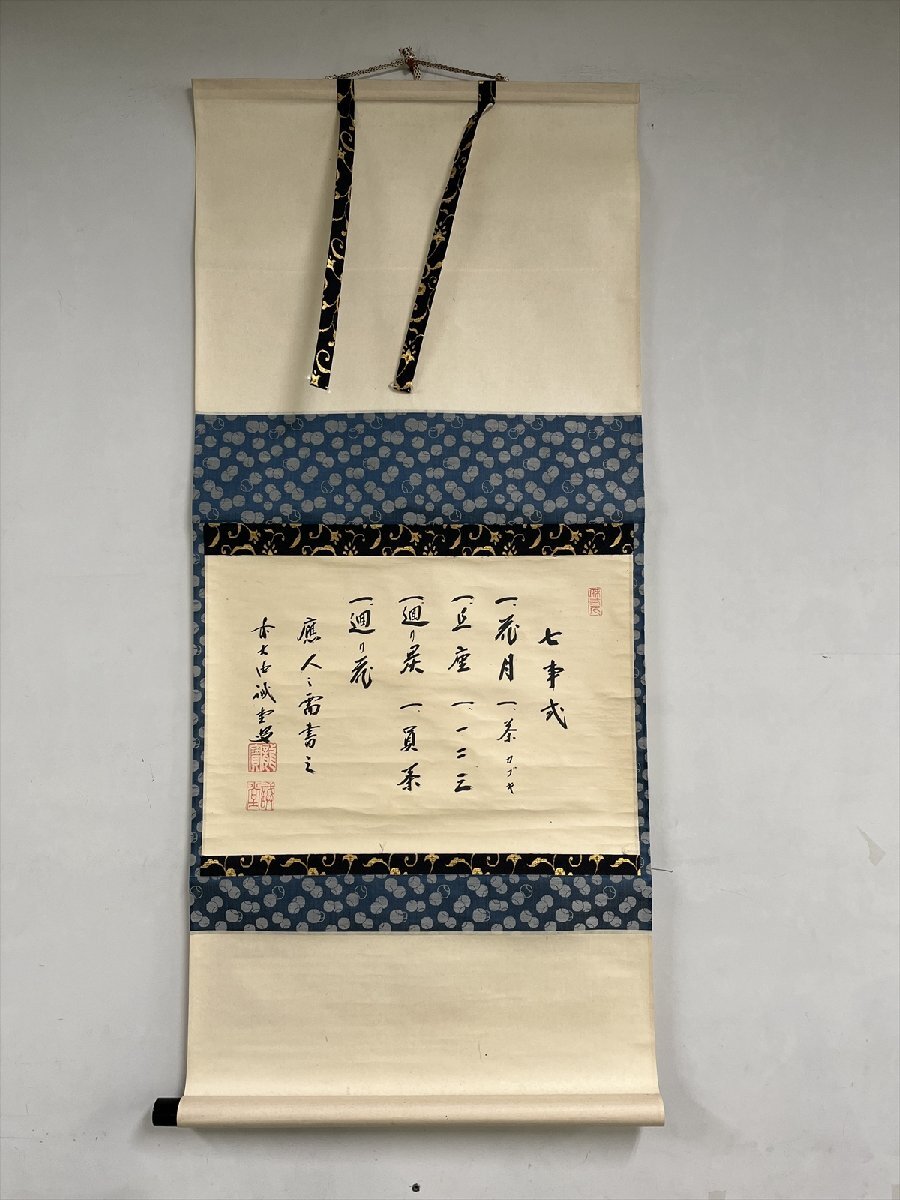 七事式
一、花月 一、茶カブキ
一、且座 一、一二三
一、廻り炭 一、員茶
一、廻り花
應人之需書之
前大徳誠堂